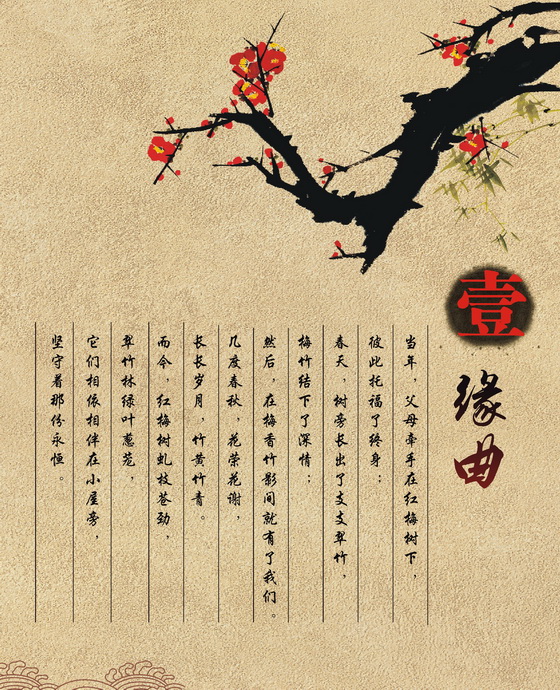 壹
缘曲
当年，父母牵手在红梅树下，
彼此托福了终身；
春天，树旁长出了支支翠竹，
梅竹结下了深情；
然后，在梅香竹影间就有了我们。
几度春秋，花荣花谢，
长长岁月，竹黄竹青。
而今，红梅树虬枝苍劲，
翠竹林绿叶葱茏，
它们相依相伴在小屋旁，
坚守着那份永恒。